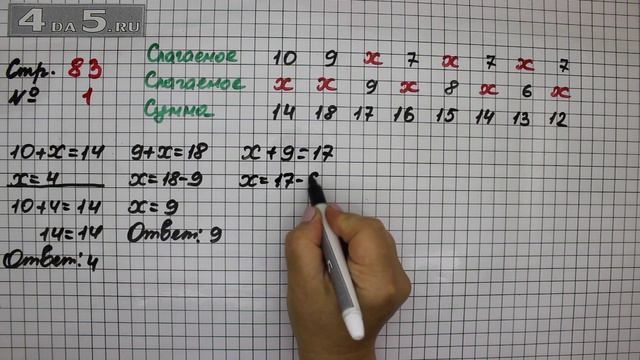 4 DA 5.RU
Стр. 83
№ 1
Слагаемое 10 9 x 7 x 7 x 7
Слагаемое x x 9 x 8 x 6 x
Сумма 14 18 17 16 15 14 13 12
10+x=14
x=4
10+4=14
14=14
Ответ: 4
9+x=18
x=18-9
x=9
Ответ: 9
x+9=17
x=17-